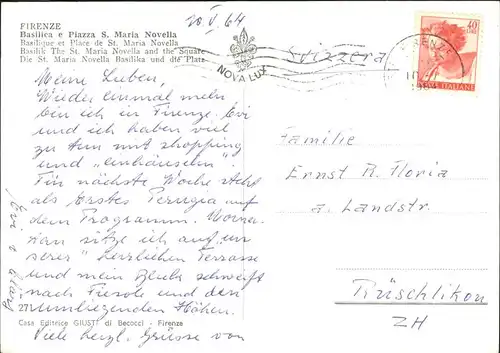 FIRENZE
Basilica e Piazza S. Maria Novella
Basilique et Place de St. Maria Novella
Basilik The St. Maria Novella and the Square
Die St. Maria Novella Basilika und die Platz
20 V. 64
NOVA LUX
Svizzera
FIRENZE
40
LIRE
POSTE ITALIANE
Meine Lieben,
Wieder einmal mehr
bin ich in Firenze. Evi
und ich haben viel
zu tun mit shopping
und "einhäuseln".
Für nächste Woche steht
als Erstes Perugia auf
dem Programm. Momen-
tan sitze ich auf "un
serer" herrlichen Terrasse
und mein Blick schweift
nach Fiesole und den
umliegenden Höhen.
Viele herzl. Grüsse von
271
Casa Editrice GIUSTI di Becocci - Firenze
Familie
Ernst R. Floria
a. Landstr.
Rüschlikon
ZH